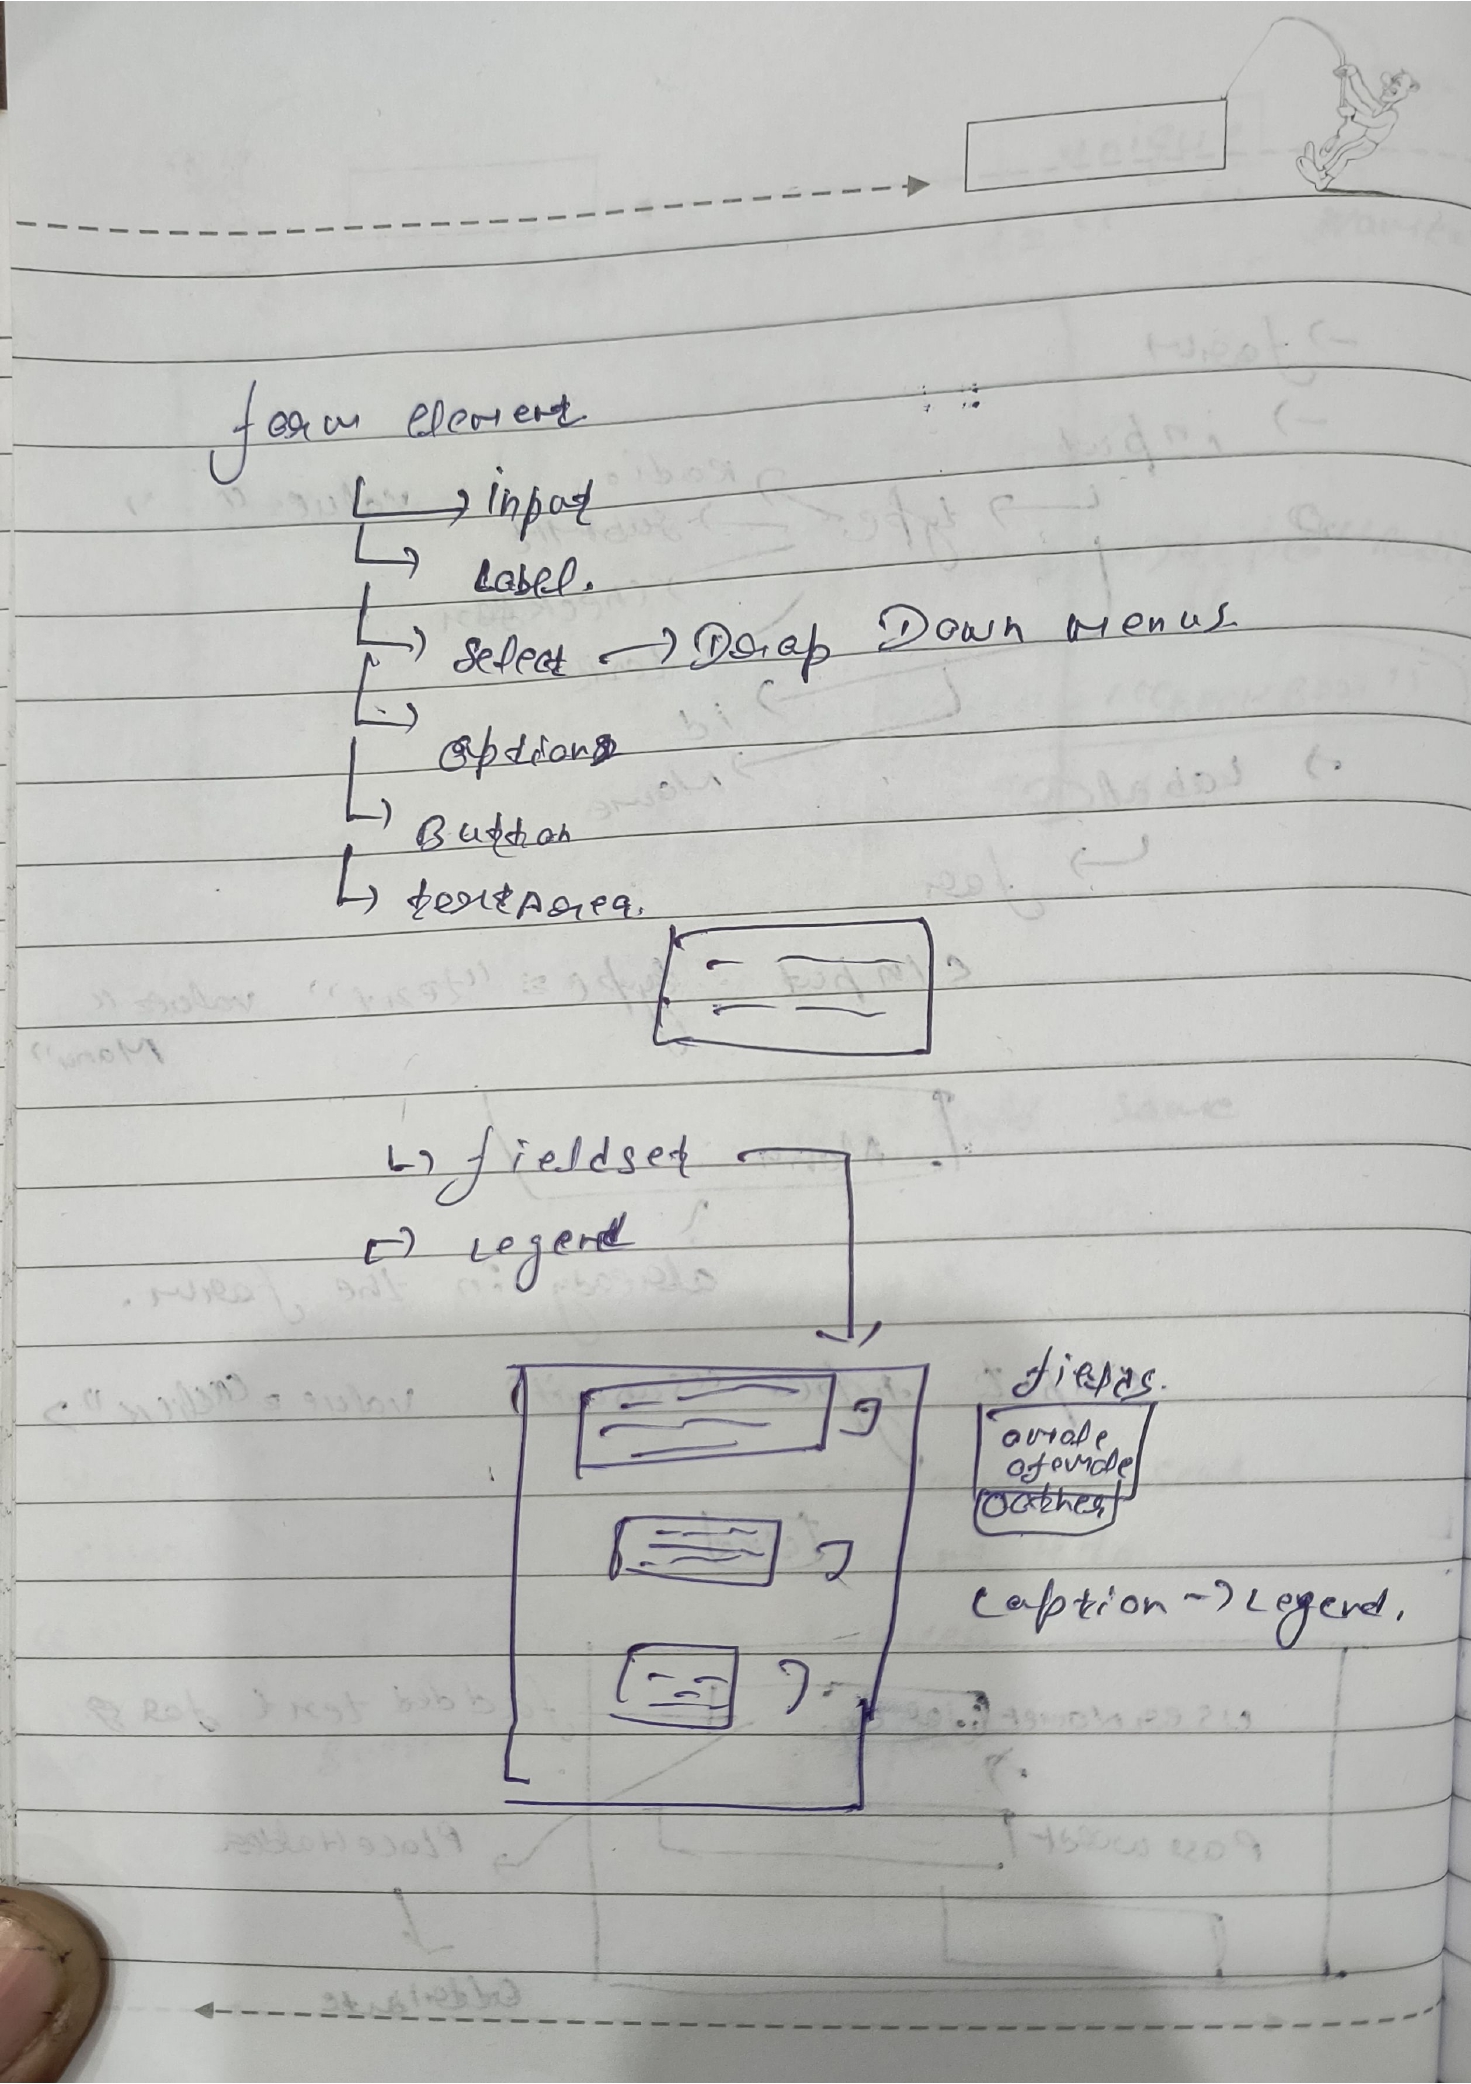 form element
→ input
→ Label.
→ Select → Drop Down menus
→ options
→ Button
→ textArea.
→ fieldset
→ Legend
fields.
o male
o femde
o other
Caption → Legend.